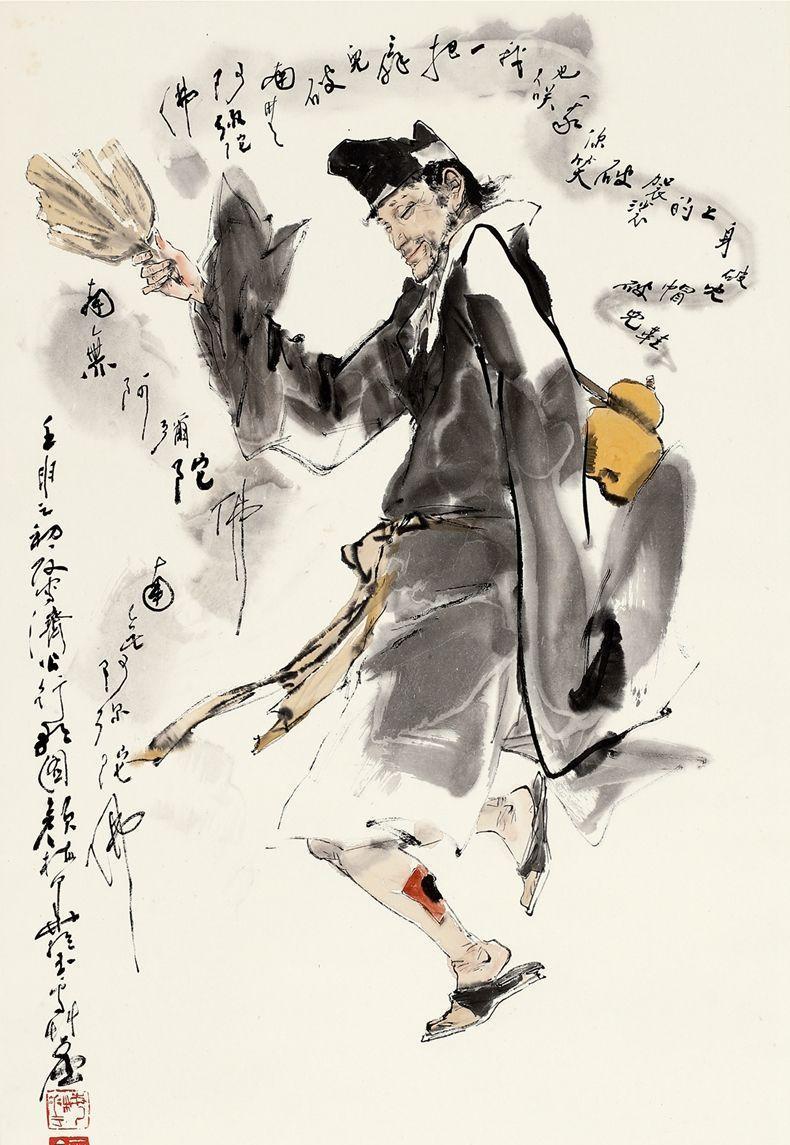 鞋兒破帽兒破身上的袈裟破你笑我他笑我一把扇兒破南無阿弥陀佛
南無阿彌陀佛
南無阿弥陀佛
壬申之初夏寫濟公行歌圖顏梅華